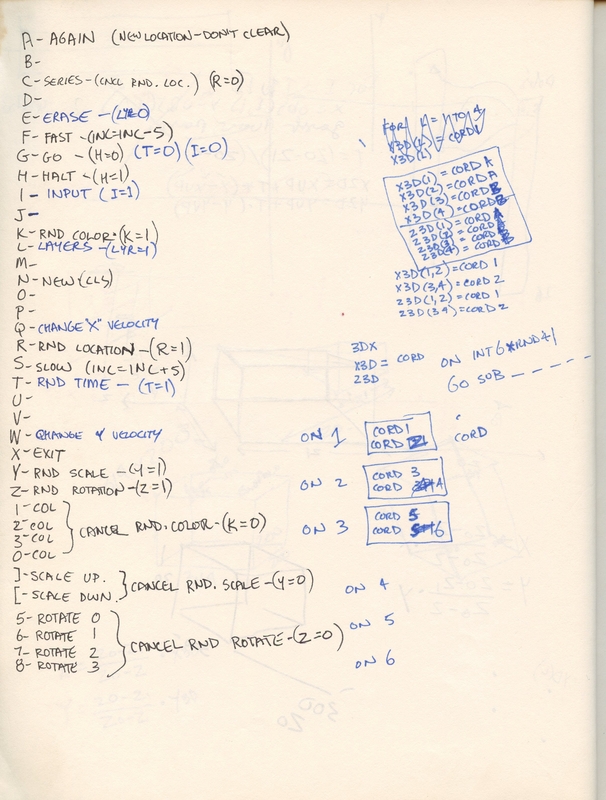 A- AGAIN (NEW LOCATION-DON'T CLEAR)
B-
C- SERIES-(CNCL RND. LOC.) (R=0)
D-
E- ERASE -(LYR=0)
F- FAST -(INC=INC-5)
G- GO -(H=0) (T=0) (I=0)
H- HALT -(H=1)
I- INPUT (I=1)
J-
K- RND COLOR-(K=1)
L- LAYERS -(LYR=1)
M-
N- NEW (CLS)
O-
P-
Q- CHANGE "X" VELOCITY
R- RND LOCATION-(R=1)
S- SLOW (INC=INC+5)
T- RND TIME - (T=1)
U-
V-
W- CHANGE Y VELOCITY
X- EXIT
Y- RND SCALE -(Y=1)
Z- RND ROTATION-(Z=1)
1- COL
2- COL
3- COL
0- COL
CANCEL RND. COLOR-(K=0)
]- SCALE UP.
[- SCALE DWN.
CANCEL RND. SCALE-(Y=0)
5- ROTATE 0
6- ROTATE 1
7- ROTATE 2
8- ROTATE 3
CANCEL RND ROTATE-(Z=0)
FOR L= 1 TO 4
X3D(L) = CORD 1
X3D(L)
X3D(1) = CORD A
X3D(2) = CORD A
X3D(3) = CORD B
X3D(4) = CORD B
Z3D(1) = CORD A
Z3D(2) = CORD A
Z3D(3) = CORD B
Z3D(4) = CORD B
X3D(1,2) = CORD 1
X3D(3,4) = CORD 2
Z3D(1,2) = CORD 1
Z3D(3,4) = CORD 2
3DX
X3D = CORD
Z3D
ON INT 6*RND+1
GO SUB — — — — —
ON 1
CORD 1
CORD 2
CORD
ON 2
CORD 3
CORD 4
ON 3
CORD 5
CORD 6
ON 4
ON 5
ON 6